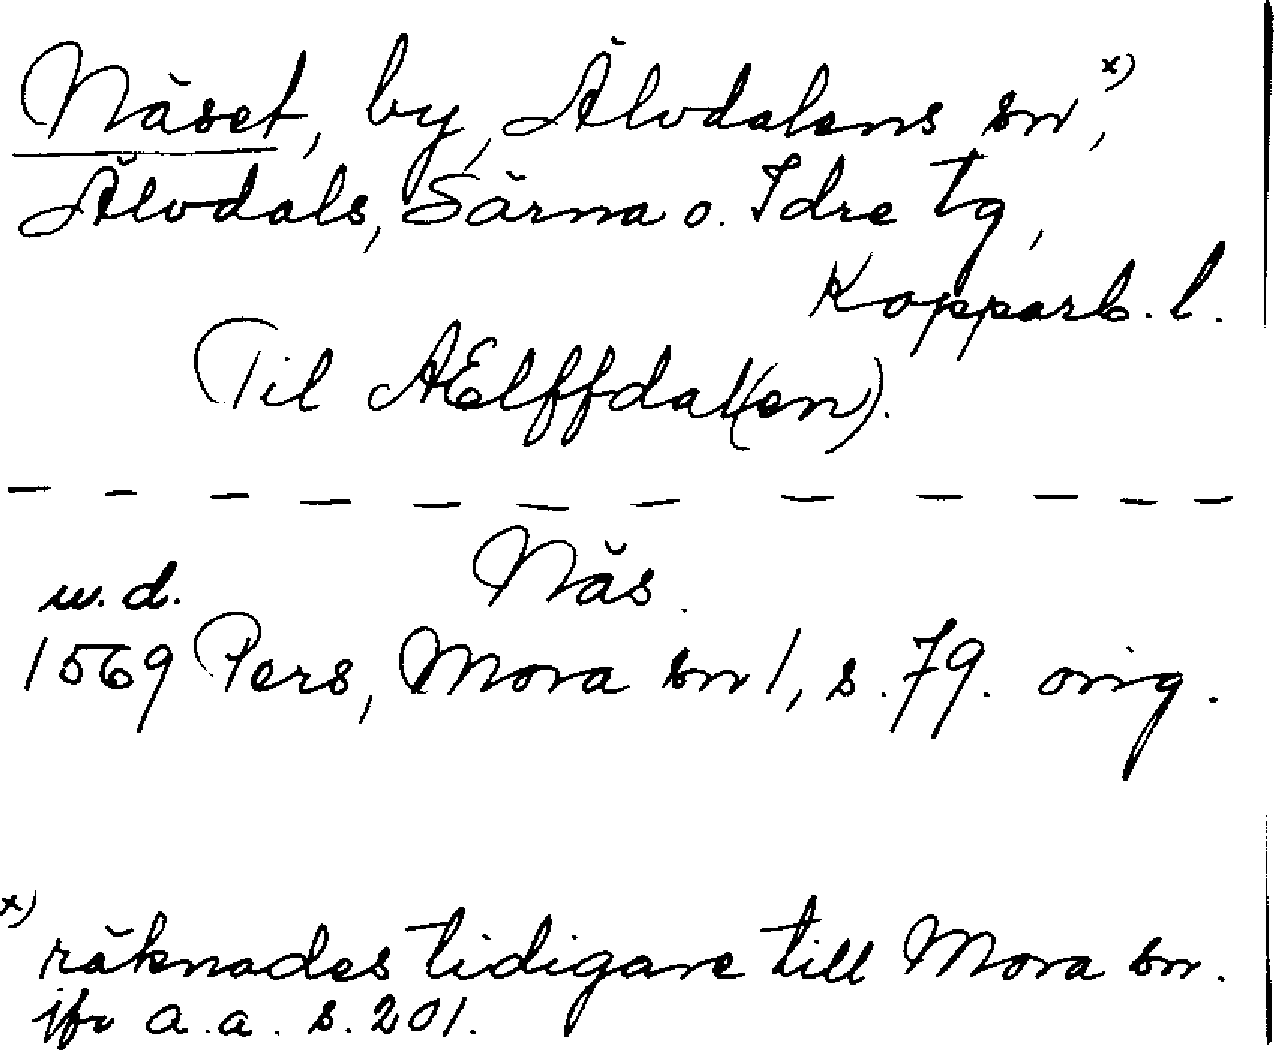 Näset, by, Älvdalens sn,x)
Älvdals, Särna o. Idre tg,
Kopparb. l.
Til AElffdal(en).
Näs.
u. d.
1569 Pers, Mora sn 1, s. 79. orig.
x)
räknades tidigare till Mora sn.
jfr a. a. s. 201.